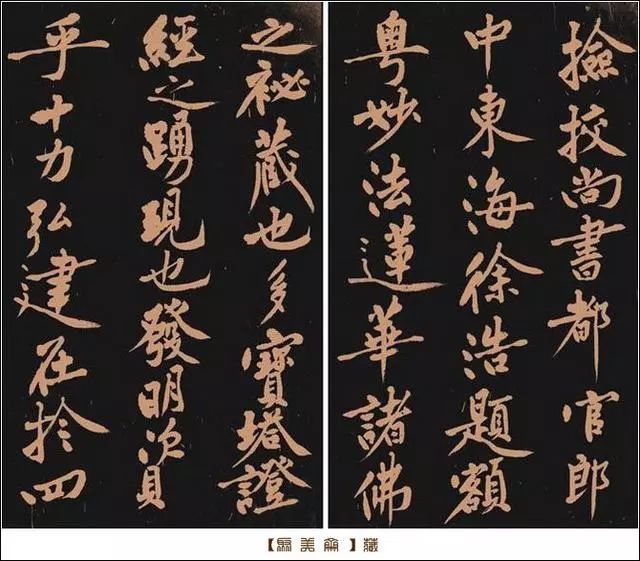 撿挍尚書都官郎
中東海徐浩題額
粤妙法蓮華諸佛
之祕藏也多寶塔證
經之踴現也發明資
乎十力弘建在於四
【爲美龠】藏